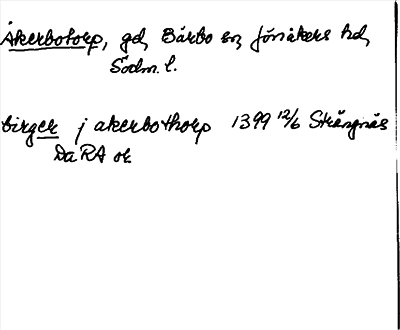 Åkerbotorp, gd, Bärbo sn, Jönåkers hd,
Södm. l.
birger j akerbothorp 1399 12/6 Strängnäs
DaRA or.